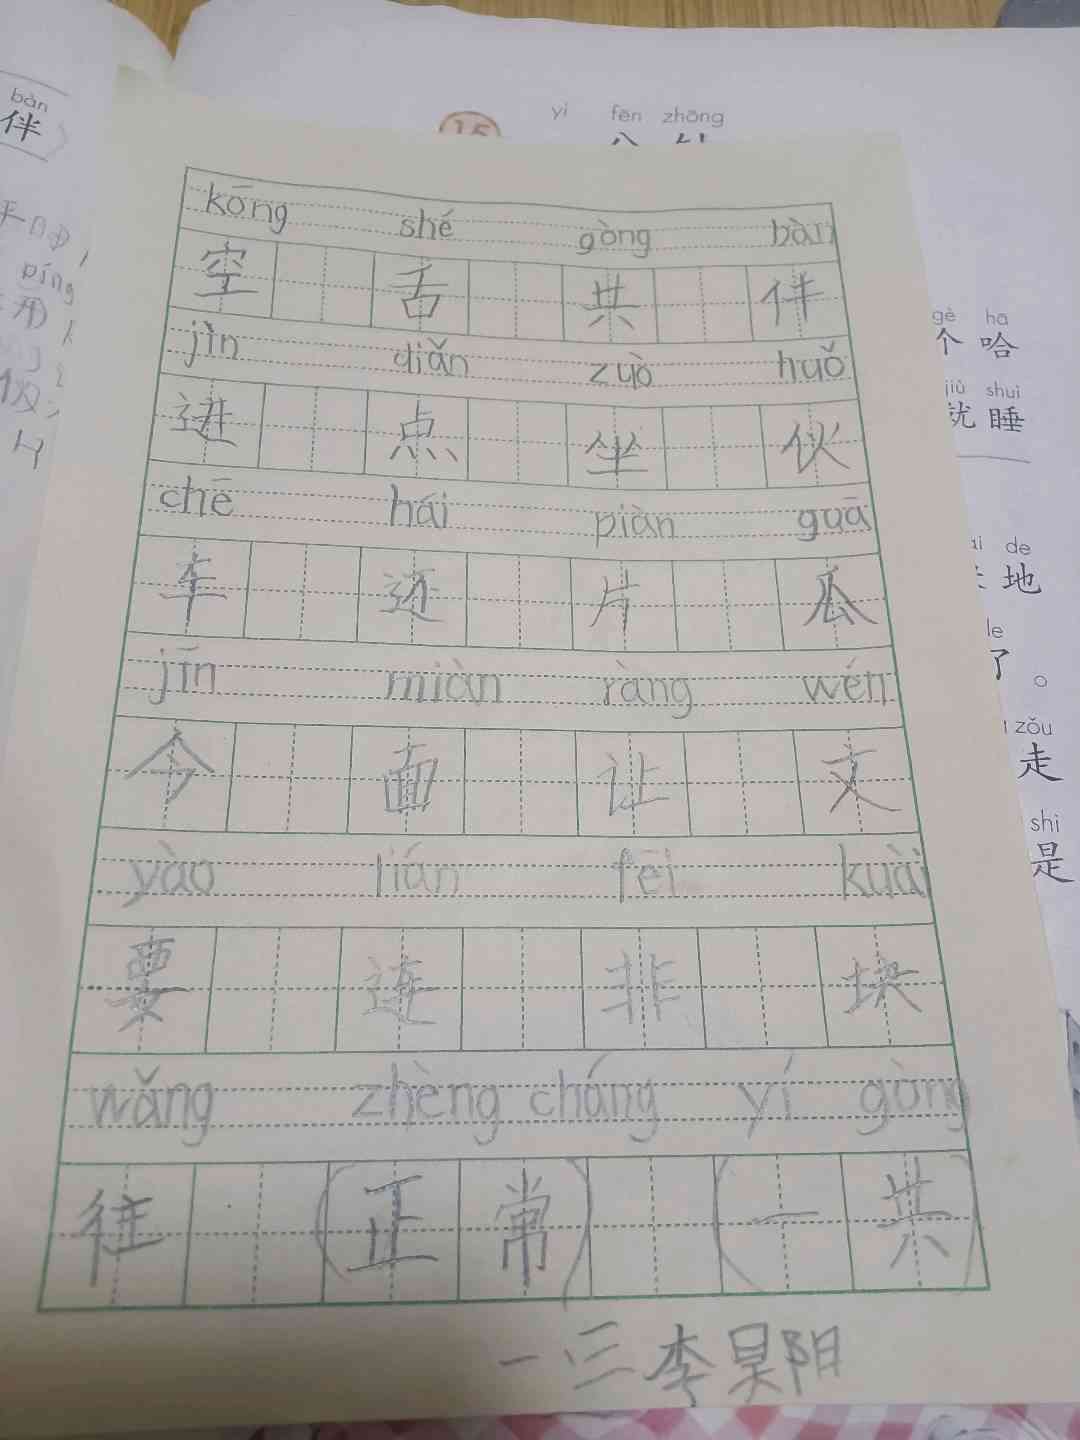 bàn
伴
yì fēn zhōng
15
píng
kōng shé gòng bàn
空 舌 共 伴
jìn diǎn zuò huǒ
进 点 坐 伙
chē hái piàn guā
车 还 片 瓜
jīn miàn ràng wén
今 面 让 文
yào lián fēi kuài
要 连 非 块
wǎng zhèng cháng yí gòng
往 (正常) (一共)
一三 李昊阳
gè ha
个 哈
jiù shuì
就 睡
de
地
le
了。
zǒu
走
shì
是